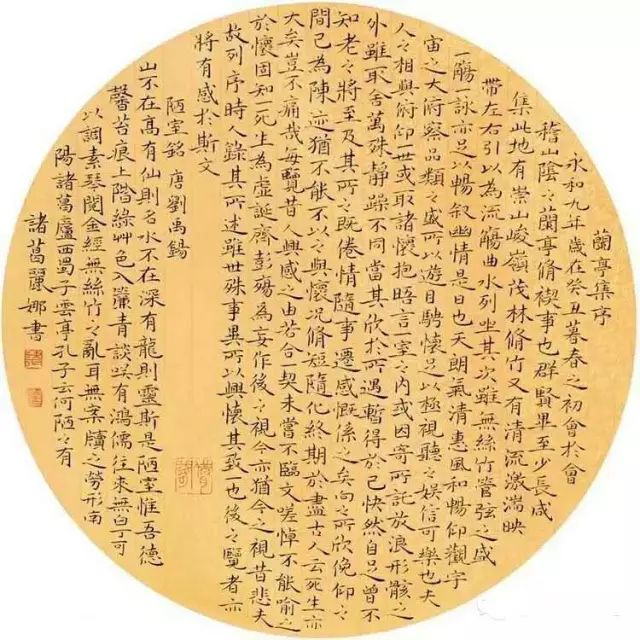 蘭亭集序
永和九年歲在癸丑暮春之初會於會
稽山陰之蘭亭脩禊事也群賢畢至少長咸
集此地有崇山峻嶺茂林脩竹又有清流激湍映
帶左右引以為流觴曲水列坐其次雖無絲竹管弦之盛
一觴一詠亦足以暢敘幽情是日也天朗氣清惠風和暢仰觀宇
宙之大府察品類之盛所以遊目騁懷足以極視聽之娛信可樂也夫
人之相與俯仰一世或取諸懷抱晤言室之內或因寄所託放浪形骸之
外雖取舍萬殊靜躁不同當其欣於所遇暫得於己快然自足曾不
知老之將至及其所之既倦情隨事遷感慨係之矣向之所欣俛仰之
間已為陳迹猶不能不以之興懷況脩短隨化終期於盡古人云死生亦
大矣豈不痛哉每覽昔人興感之由若合契未嘗不臨文嗟悼不能喻之
於懷固知一死生為虛誕齊彭殤為妄作後之視今亦猶今之視昔悲夫
故列序時人錄其所述雖世殊事異所以興懷其致一也後之覽者亦
將有感於斯文
陋室銘 唐劉禹錫
山不在高有仙則名水不在深有龍則靈斯是陋室惟吾德
馨苔痕上階綠艸色入簾青談咲有鴻儒往來無白丁可
以調素琴閱金經無絲竹之亂耳無案牘之勞形南
陽諸葛廬西蜀子雲亭孔子云何陋之有
諸葛麗娜書